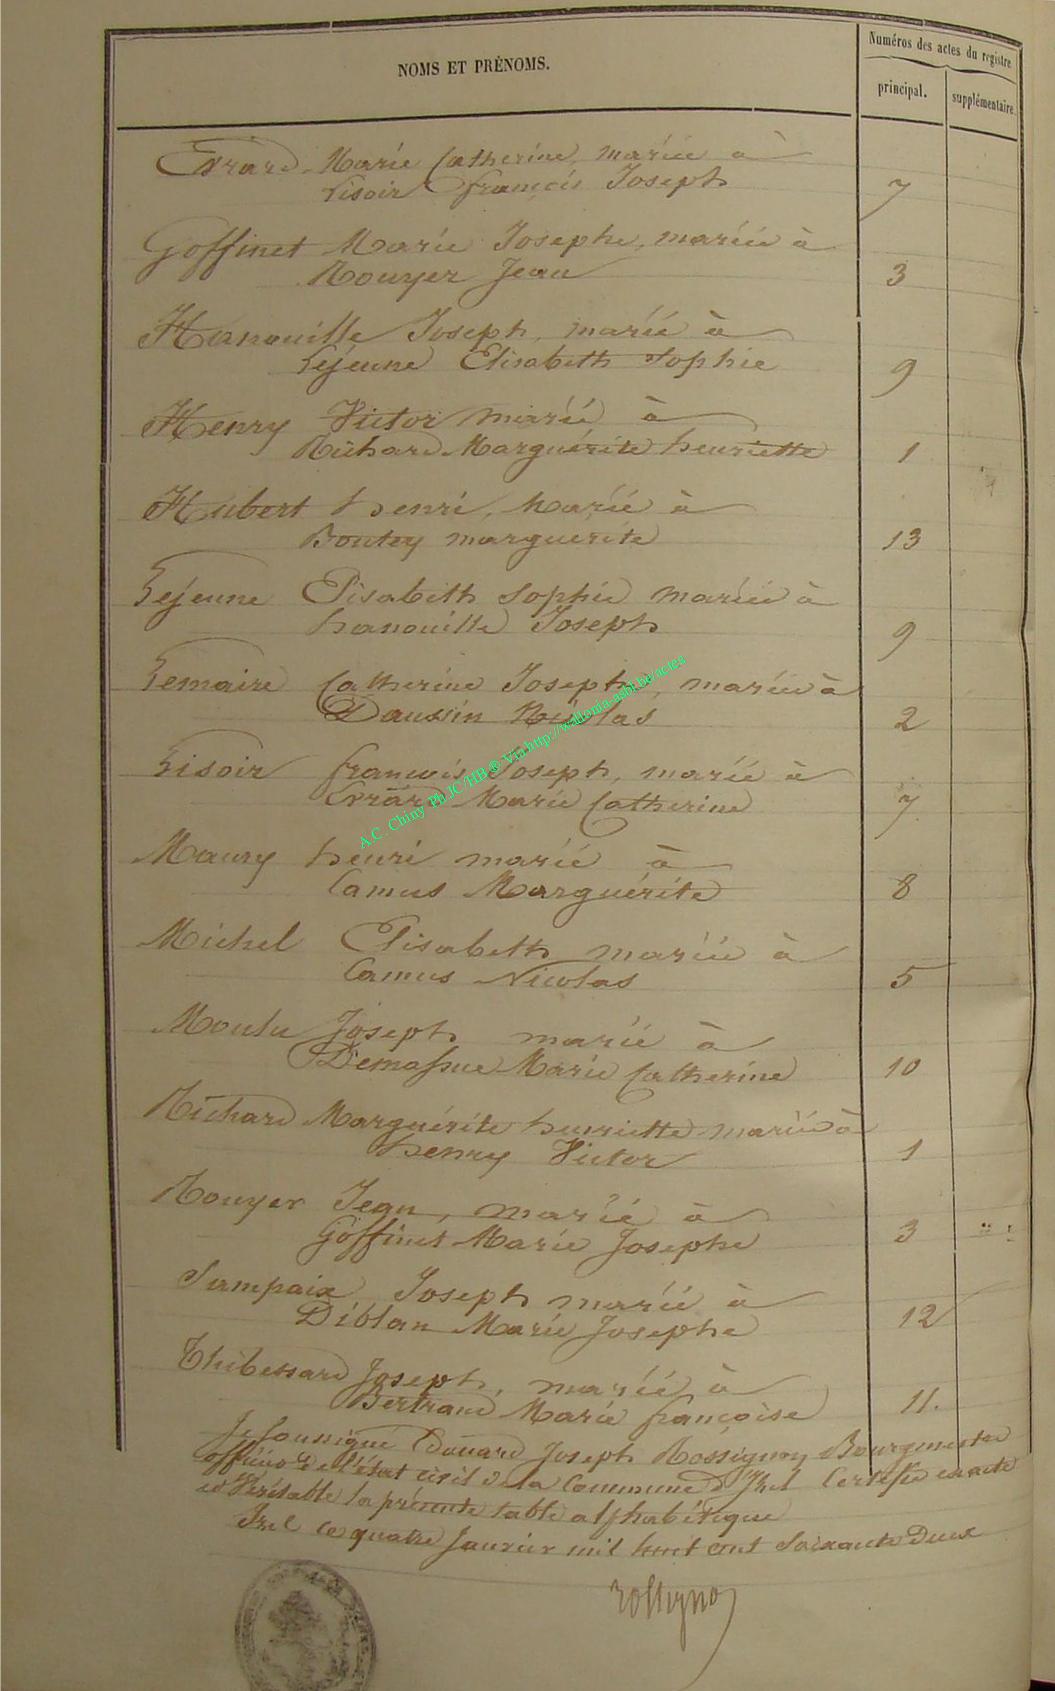 NOMS ET PRÉNOMS.
Numéros des actes du registre
principal.
supplémentaire.
Evrard Marie Catherine, mariée à
Lisoir françois Joseph 7
Goffinet Marie Josephe, mariée à
Rouyer Jean 3
Hanouille Joseph, marié à
Lejeune Elisabeth Sophie 9
Henry Victor marié à
Richard Marguérite henriette 1
Hubert henri, marié à
Boutey marguerite 13
Lejeune Elisabeth Sophie mariée à
hanouille Joseph 9
Lemaire Catherine Josephe, mariée à
Daussin Nicolas 2
Lisoir françois Joseph, marié à
Evrard Marie Catherine 7
Maury henri marié à
Camus Marguérite 8
Michel Elisabeth mariée à
Camus Nicolas 5
Moulu Joseph marié à
Demassue Marie Catherine 10
Richard Marguérite henriette mariée à
henry Victor 1
Rouyer Jean, marié à
Goffinet Marie Josephe 3
Sampaix Joseph marié à
Diblan Marie Josephe 12
Thibessard Joseph, marié à
Bertrand Marie françoise 11.
Je soussigné Edouard Joseph Rossignon Bourgmestre
officier de l'état civil de la Commune d'Izel Certifie exacte
et Véritable la présente table alphabétique
Izel ce quatre Janvier mil huit cent Soixante Deux
Rossignon
A.C. Chiny Ph.JC/HB® Via http://wallonia-asbl.be/actes